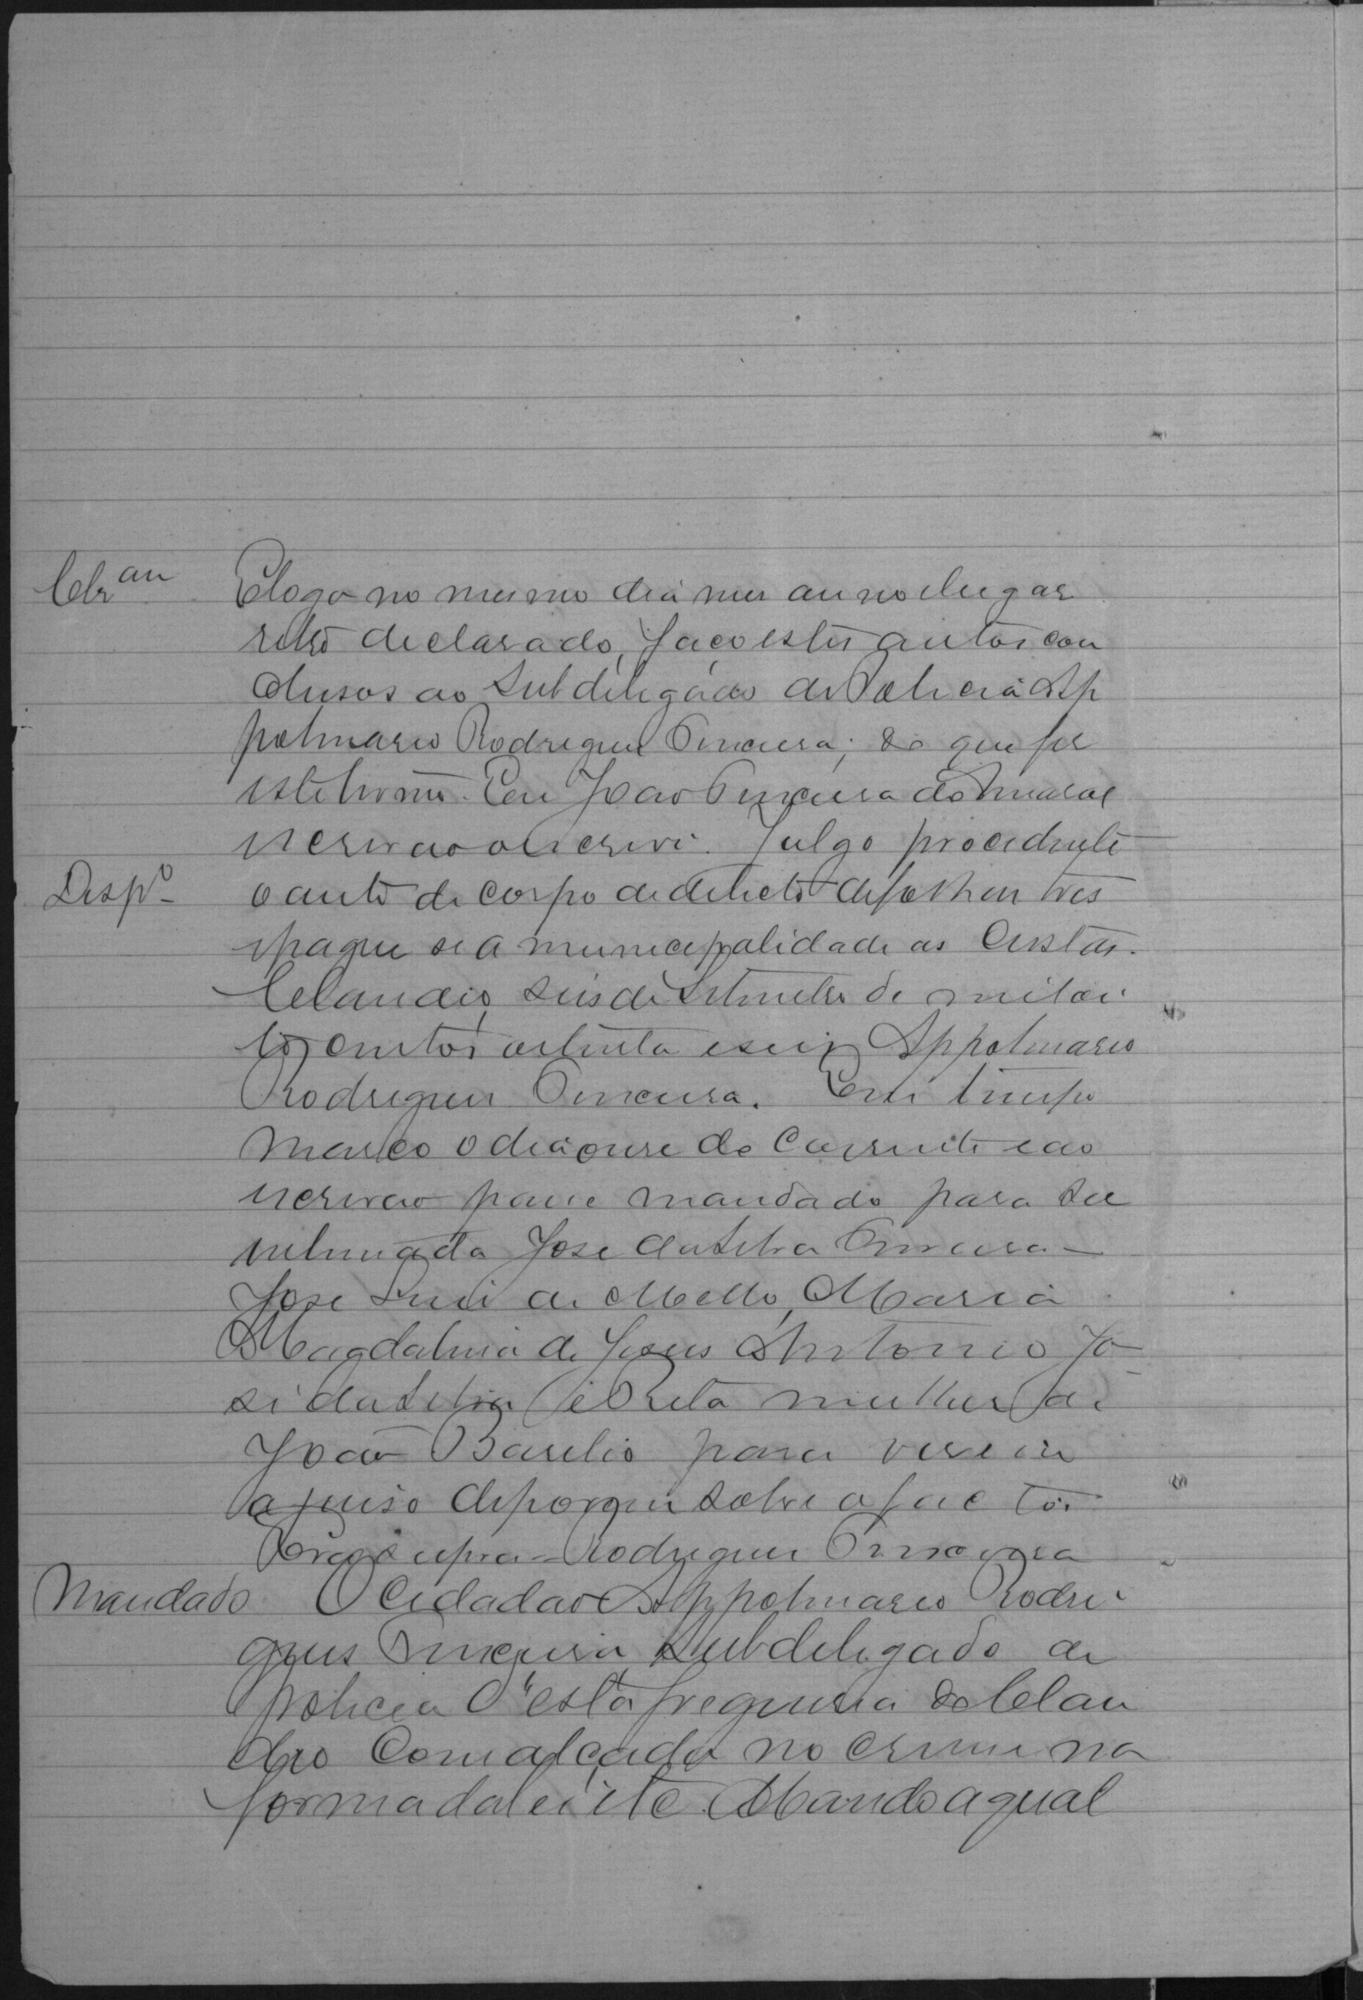 Clz.am Elogo no mesmo dia mes anno elugar
retro declarado, faço estes autos con
clusos ao Subdelegado de Policia Ap
polinario Rodrigues Pimenta; do que fiz
este termo. Eu João Pimenta do Amaral
escrivão o escrevi. Julgo procedente
Desp.o o auto de corpo de delicto de folhas tres
epague se a municipalidade as Custas.
Claudio, seis de Setembro de mil oi
to centos oitenta e seis Appolinario
Rodrigues Pimenta. Em tempo
marco o dia onse do Corrente eao
escrivão passe mandado para ser
intimada Jose da Silva Pimenta
Jose Luis de Mello, Maria
Magdalena de Jesus Antonio Jo
sé da Silva e Rita mulher de
João Basilio para virem
a juiso depor sobre o facto.
Era supra Rodrigues Pimenta
Mandado O Cidadão Appolinario Rodri
gues Pimenta Subdelegado de
policia d'esta freguesia do Clau
dio Com alçada no crime na
forma da lei etc. Mando a qual